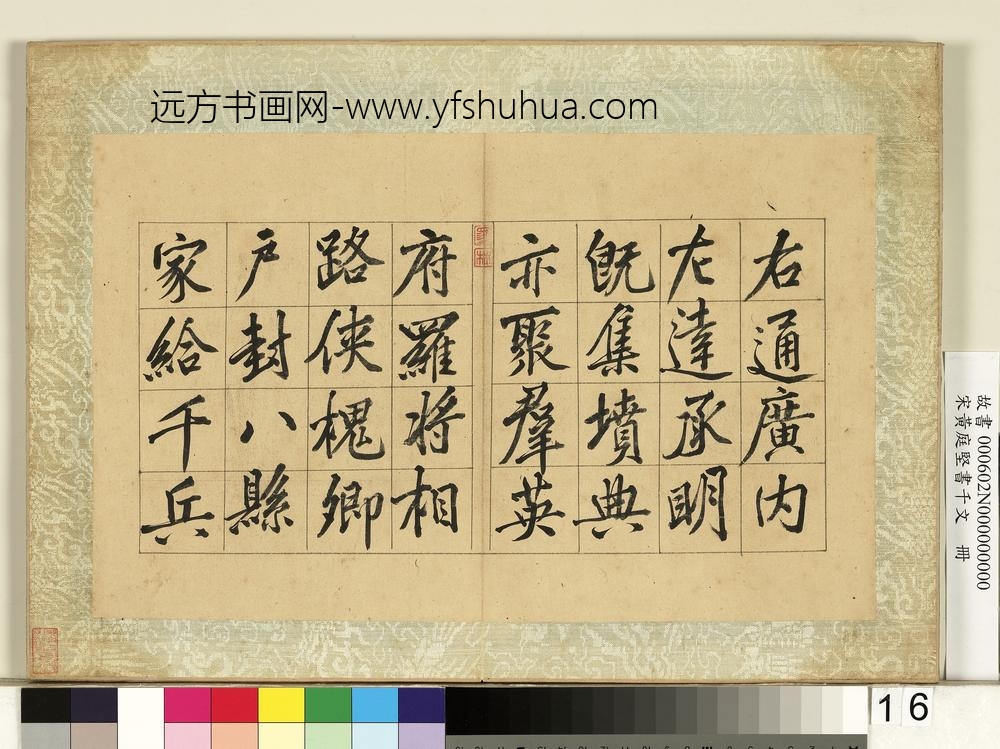 远方书画网-www.yfshuhua.com
右通廣内
左達承明
旣集墳典
亦聚羣英
府羅將相
路侠槐卿
戶封八縣
家給千兵
故書 000602N000000000
宋黃庭堅書千文 冊
16